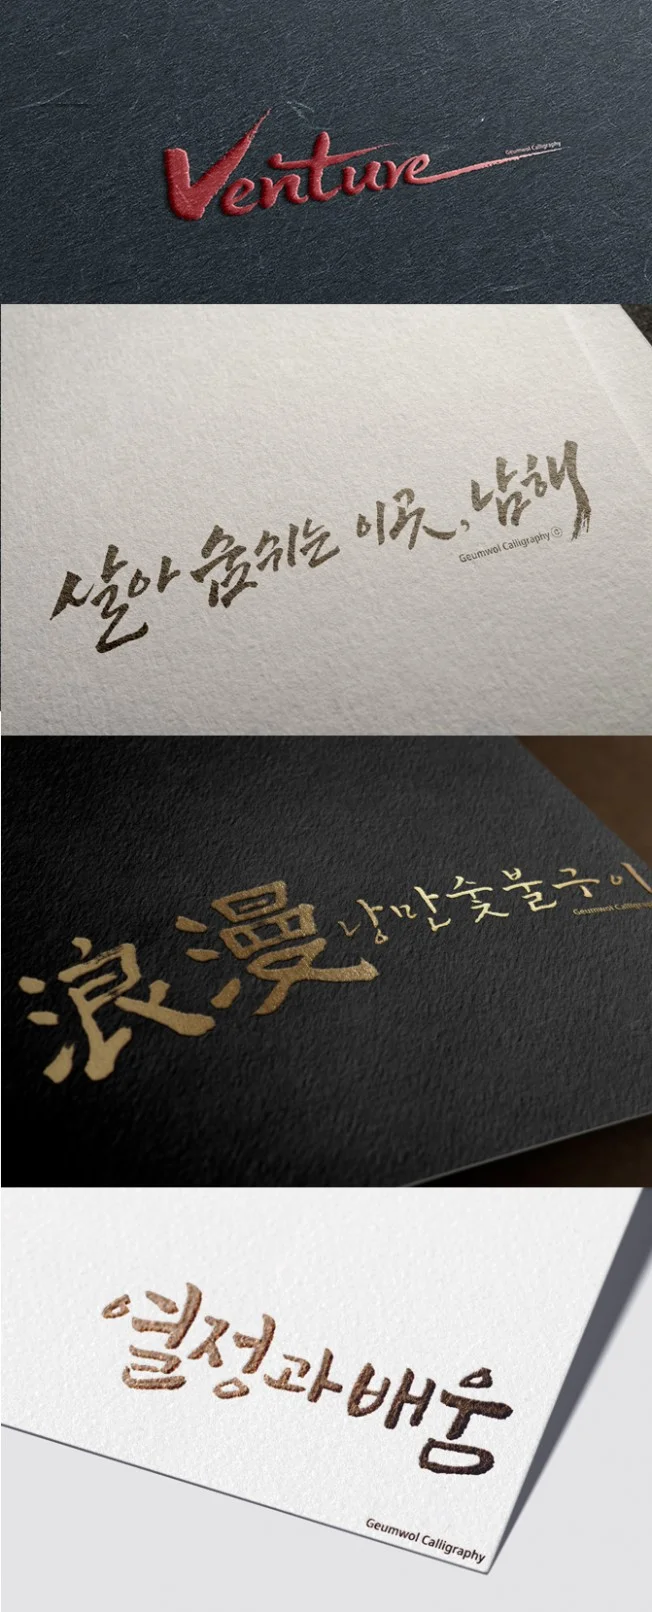 Venture
Geumwol Calligraphy
살아 숨쉬는 이곳, 남해
Geumwol Calligraphy ⓒ
浪漫 낭만숯불구이
Geumwol Calligraphy
열정과배움
Geumwol Calligraphy